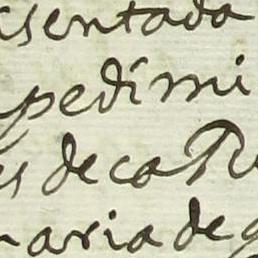 sentada
pedimi
es de ca R
aria de